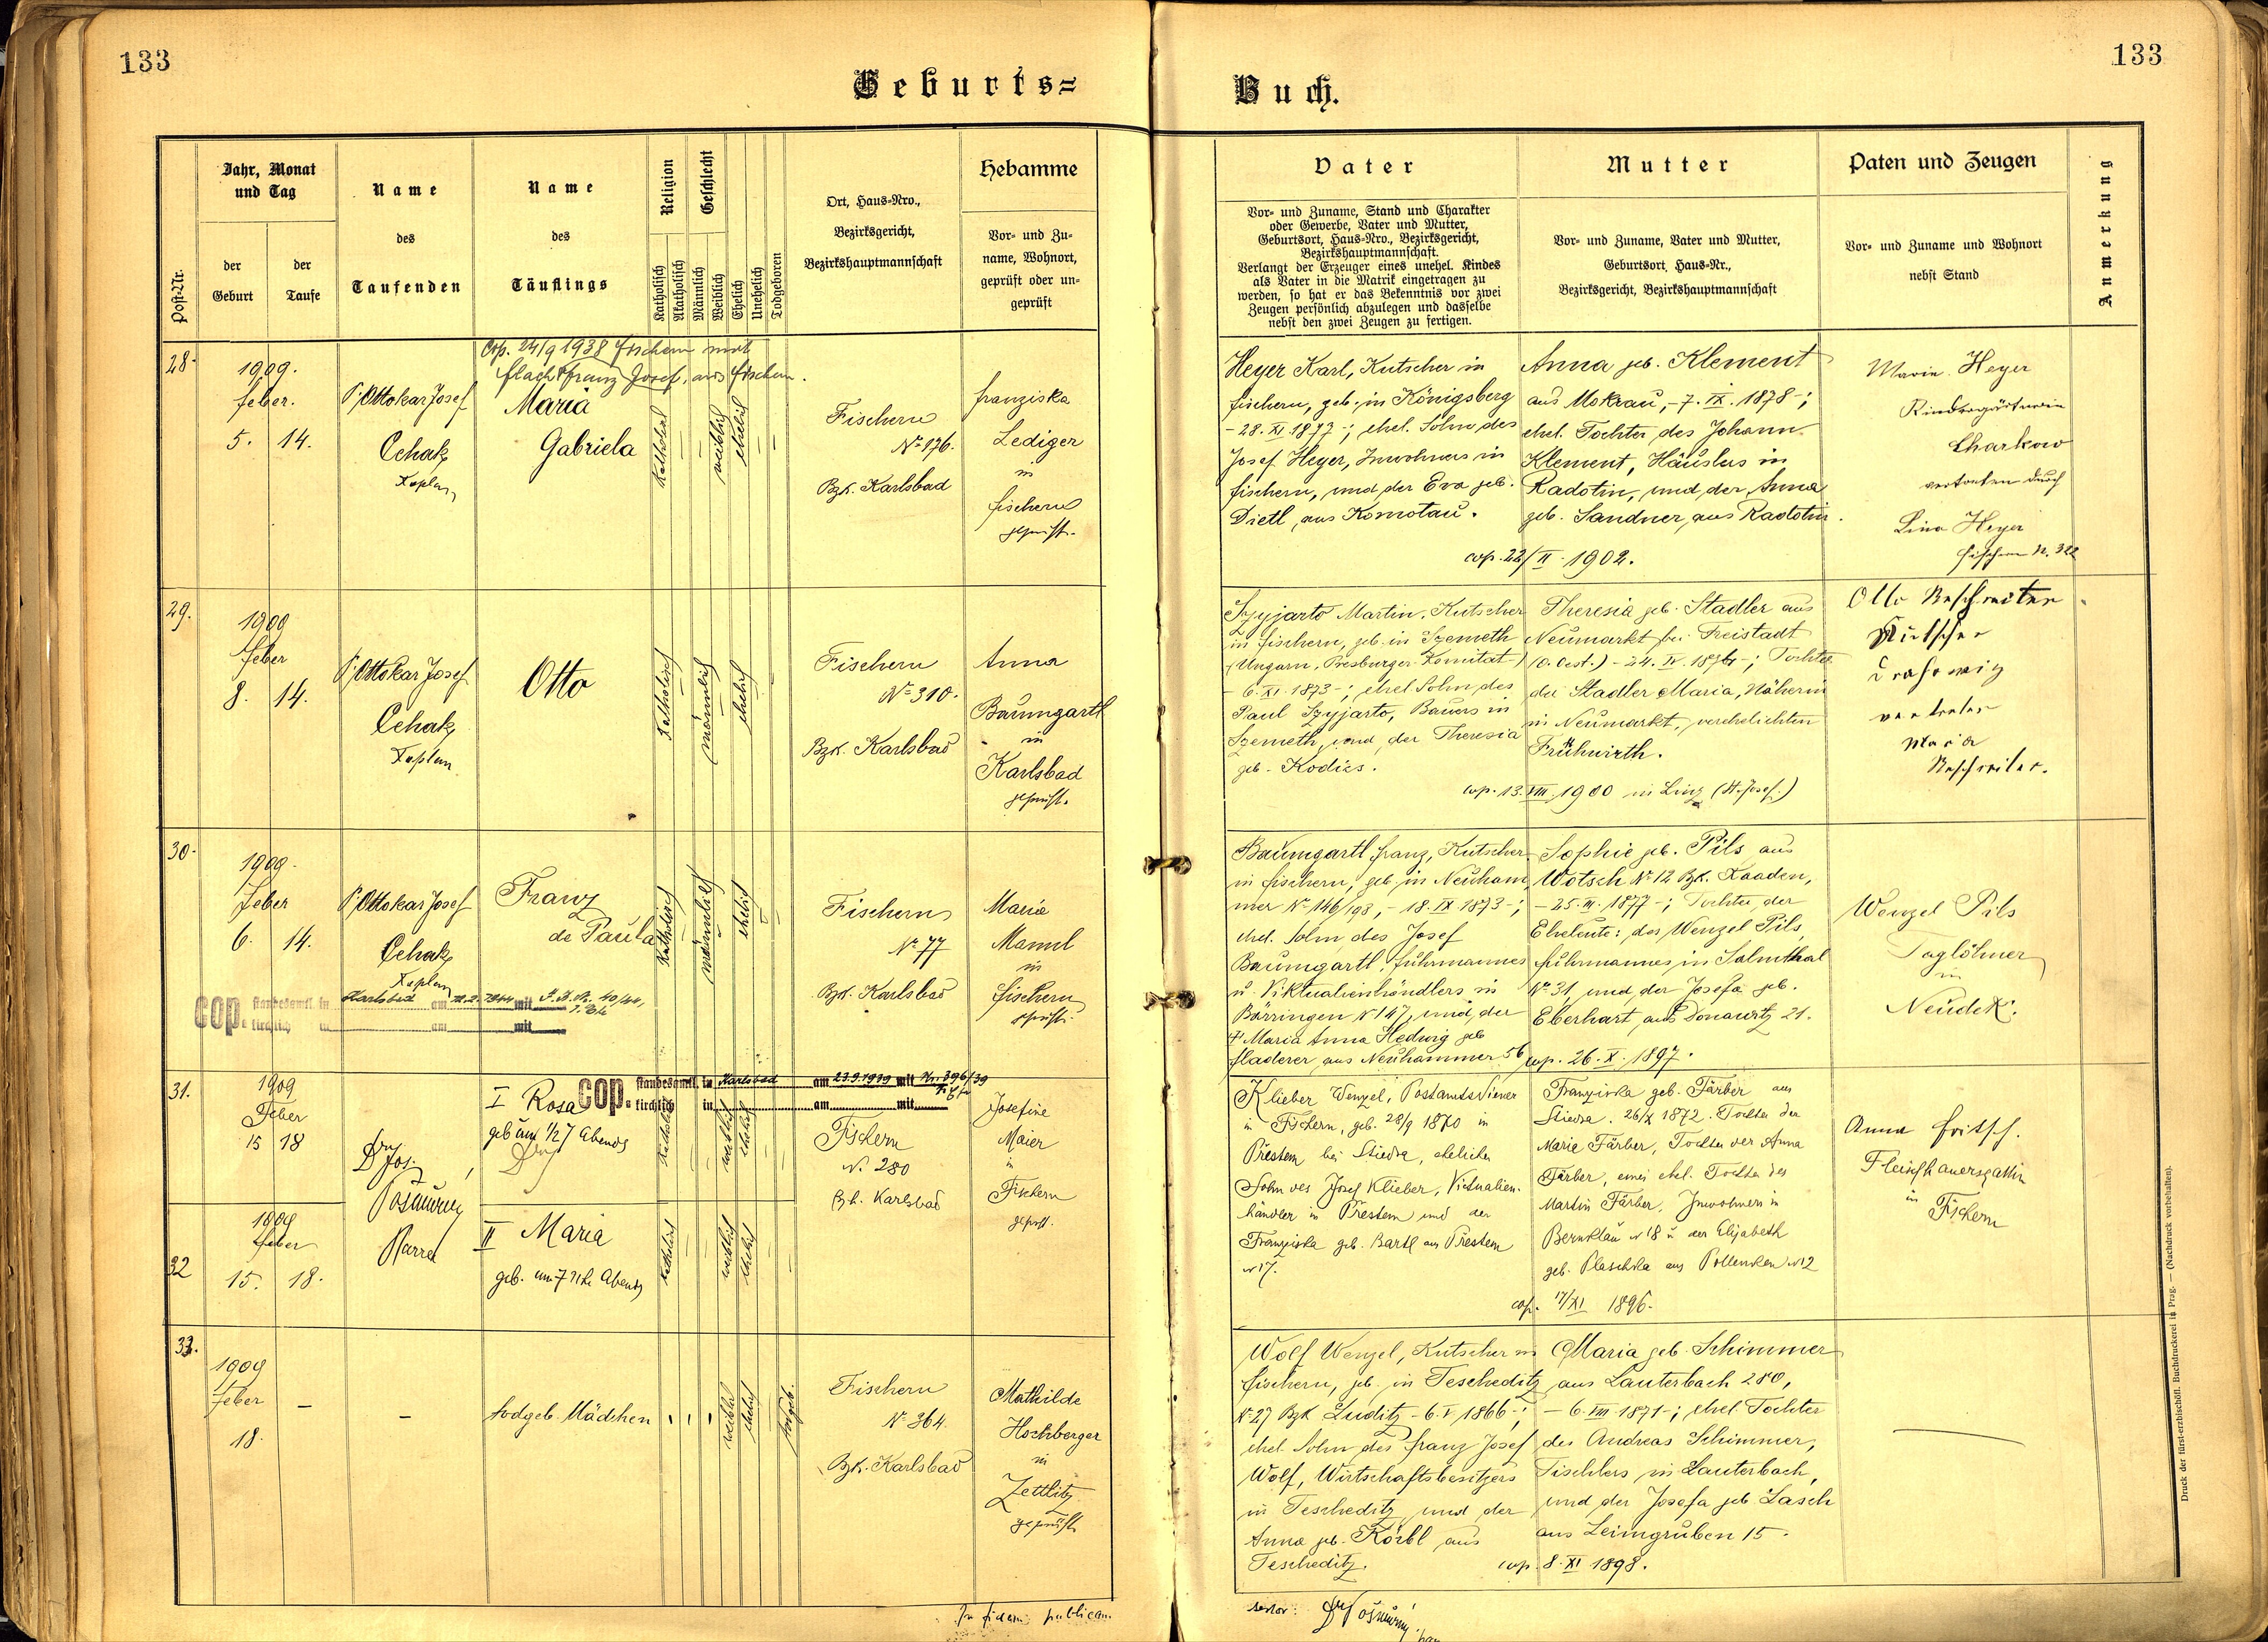 133
133
Geburts=
Buch.
Post-Nr.
Jahr, Monat
und Tag
der
Geburt
der
Taufe
Name
des
Taufenden
Name
des
Täuflings
Religion
Katholisch
Akatholisch
Geschlecht
Männlich
Weiblich
Ehelich
Unehelich
Todgeboren
Ort, Haus-Nro.,
Bezirksgericht,
Bezirkshauptmannschaft
Hebamme
Vor- und Zu-
name, Wohnort,
geprüft oder un-
geprüft
Vater
Vor- und Zuname, Stand und Charakter
oder Gewerbe, Vater und Mutter,
Geburtsort, Haus-Nro., Bezirksgericht,
Bezirkshauptmannschaft.
Verlangt der Erzeuger eines unehel. Kindes
als Vater in die Matrik eingetragen zu
werden, so hat er das Bekenntnis vor zwei
Zeugen persönlich abzulegen und dasselbe
nebst den zwei Zeugen zu fertigen.
Mutter
Vor- und Zuname, Vater und Mutter,
Geburtsort, Haus-Nr.,
Bezirksgericht, Bezirkshauptmannschaft
Paten und Zeugen
Vor- und Zuname und Wohnort
nebst Stand
Anmerkung
28.
1909.
Feber.
5. 14.
P. Ottokar Josef
Cehak
Kaplan
Cop. 24/9 1938 Fischern mit
Flach Franz Josef, aus Fischern.
Maria
Gabriela
katholisch
weiblich
ehelich
Fischern
Nº 176.
Bzk. Karlsbad
Franziska
Lediger
in
Fischern
geprüft.
Heyer Karl, Kutscher in
Fischern, geb. in Königsberg
- 28. XI 1873 -; ehel. Sohn des
Josef Heyer, Inwohners in
Fischern, und der Eva geb.
Dietl, aus Komotau.
Anna geb. Klement
aus Mokrau, - 7. IX. 1878 -;
ehel. Tochter des Johann
Klement, Häuslers in
Radotin, und der Anna
geb. Sandner, aus Radotin.
cop. 22/II 1902.
Marie Heyer
Kindergärtnerin
Charkow
vertreten durch
Lina Heyer
Fischern N. 322
29.
1909
Feber
8. 14.
P. Ottokar Josef
Cehak
Kaplan
Otto
katholisch
männlich
ehelich
Fischern
Nº 310.
Bzk. Karlsbad
Anna
Baumgartl
in
Karlsbad
geprüft.
Szyjarto Martin, Kutscher
in Fischern, geb. in Szemeth
(Ungarn, Presburger Komitat)
- 6. XI. 1873 -; ehel. Sohn des
Paul Szyjarto, Bauers in
Szemeth, und der Theresia
geb. Kodics.
Theresia geb. Stadler aus
Neumarkt bei Freistadt
(O. Oest.) - 24. IV. 1876 -; Tochter
der Stadler Maria, Näherin
in Neumarkt, verehelichten
Frühwirth.
cop. 13. VIII. 1900 in Linz (St. Josef.)
Otto
Kutscher
vertreter
Maria
30.
1909.
Feber
6. 14.
P. Ottokar Josef
Cehak
Kaplan
Franz
de Paula
katholisch
männlich
ehelich
Fischern
Nº 77
Bzk. Karlsbad
Maria
Mannl
in
Fischern
geprüft.
cop. standesamtl. in Karlsbad am mit
kirchlich in am mit
Baumgartl Franz, Kutscher
in Fischern, geb. in Neuham
mer Nº 146/198, - 18. IX 1873 -;
ehel. Sohn des Josef
Baumgartl, Fuhrmannes
u. Viktualienhändlers in
Bärringen N 147, und der
† Maria Anna Hedwig geb
Fladerer aus Neuhammer 56
Sophie geb. Pils, aus
Wotsch Nº 12 Bzk. Kaaden,
- 25. III. 1877 -; Tochter der
Eheleute: des Wenzel Pils,
Fuhrmannes in Salmthal
Nº 31, und der Josefa geb.
Eberhart, aus Donawitz 21.
cop. 26. X. 1897.
Wenzel Pils
Taglöhner
in
Neudek.
31.
1909
Feber
15 18
Dr Jos.
Pfarrer
I Rosa
geb um 1/2 7 Abends
cop. standesamtl. in Karlsbad am 23.9.1939 mit Nr. 396/39
kirchlich in am mit
katholisch
weiblich
ehelich
Fischern
N. 280
Bzk. Karlsbad
Josefine
Maier
in
Fischern
geprüft.
Klieber Wenzel, Postamtsdiener
in Fischern, geb. 28/9 1870 in
Prestein bei Stiedra, ehelicher
Sohn des Josef Klieber, Victualien-
händler in Prestein und der
Franziska geb. Bartl aus Prestein
N 17.
Franziska geb. Färber aus
Stiedra. 26/X 1872. Tochter der
Maria Färber, Tochter der Anna
Färber, einer ehel. Tochter des
Martin Färber, Inwohners in
Bernklau N 18 u. der Elisabeth
geb. Plaschka aus Pollenken N 12
cop. 17/XI 1896.
Anna Fritsch.
Fleischhauersgattin
in
Fischern
32
1909
Feber
15. 18.
II Maria
geb. um 7 Uhr Abends
katholisch
weiblich
ehelich
33.
1909
Feber
18.
–
–
todgeb. Mädchen
weiblich
ehelich
todgeb.
Fischern
Nº 364.
Bzk. Karlsbad
Mathilde
Hochberger
in
Zettlitz
geprüft
Wolf Wenzel, Kutscher in
Fischern, geb. in Tescheditz
Nº 27 Bzk Luditz - 6. V 1866 -;
ehel. Sohn des Franz Josef
Wolf, Wirtschaftsbesitzers
in Tescheditz, und der
Anna geb. Körbl aus
Tescheditz.
Maria geb. Schimmer
aus Lauterbach 280,
- 6. VIII 1871 -; ehel. Tochter
des Andreas Schimmer,
Tischlers in Lauterbach,
und der Josefa geb. Lasch
aus Leimgruben 15.
cop. 8. XI 1898.
In fidem publicam.
Druck der fürst-erzbischöfl. Buchdruckerei in Prag. — (Nachdruck vorbehalten).